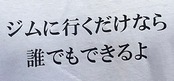 ジムに行くだけなら
誰でもできるよ